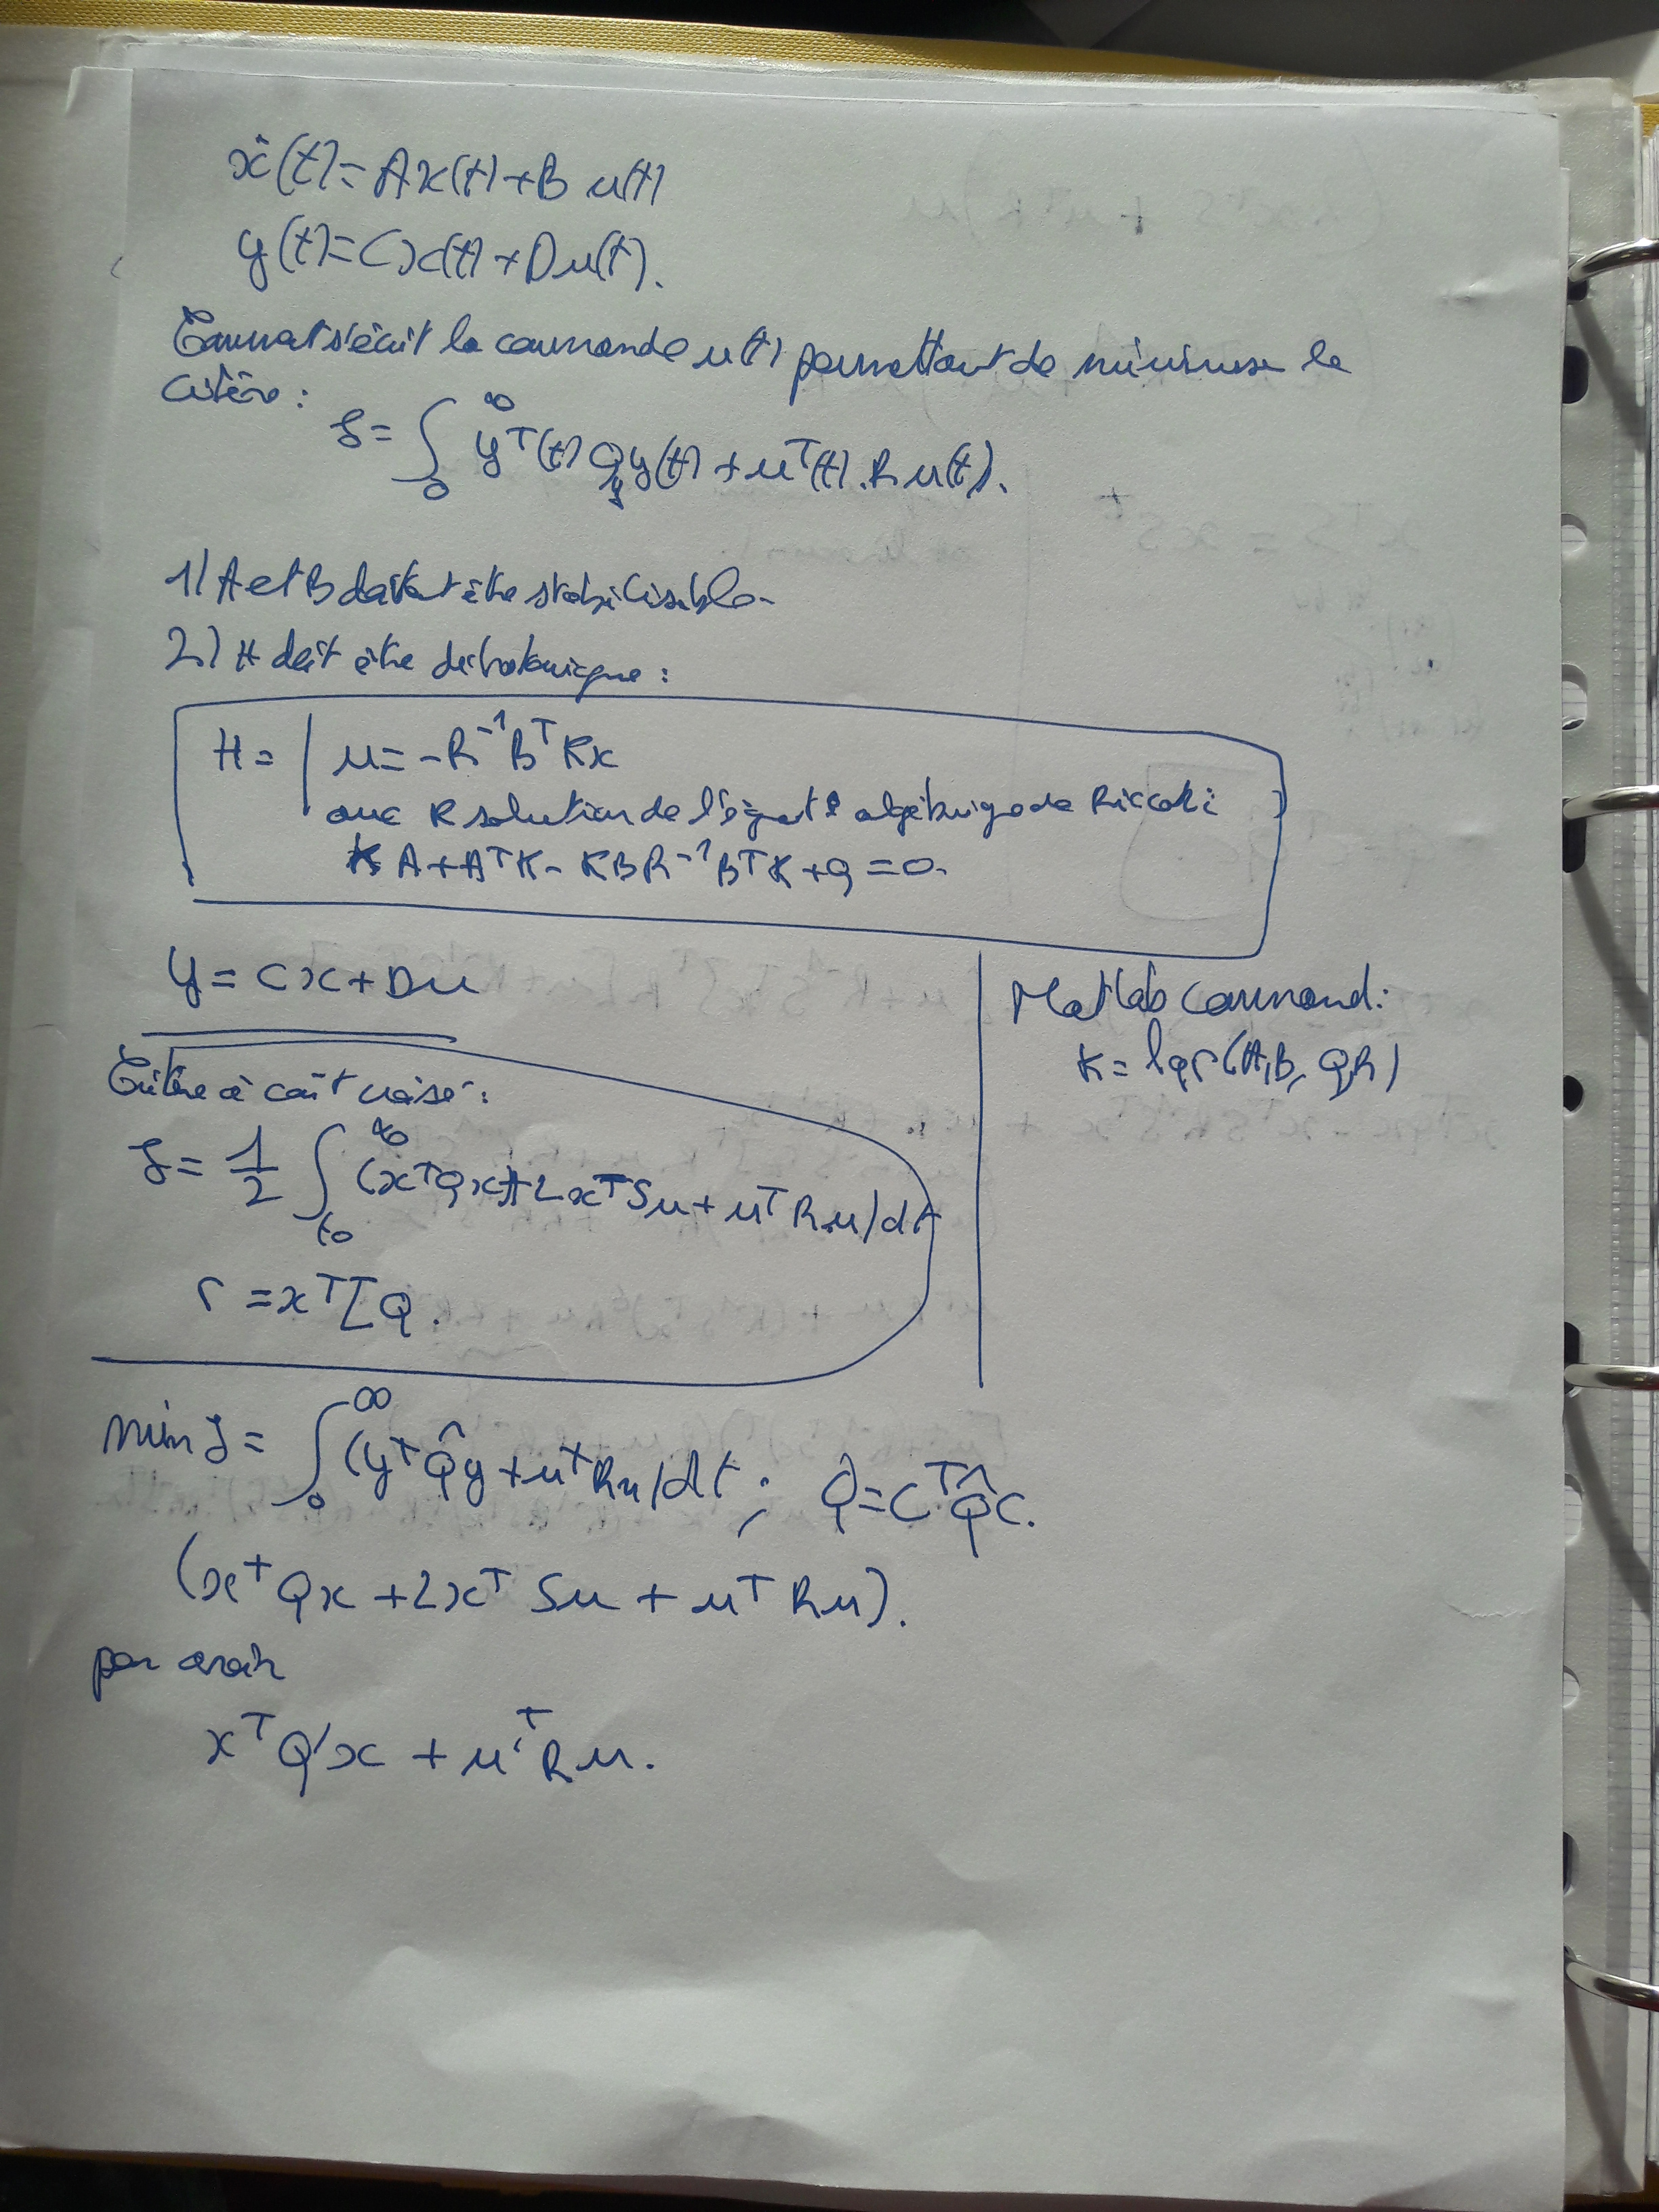 ẋ(t)=Ax(t)+B u(t)
y(t)=Cx(t)+Du(t).
Comment s'écrit la commande u(t) permettant de minimiser le
critère :
J= ∫₀^∞ yᵀ(t) Q_y y(t) + uᵀ(t).R u(t).
1) A et B doivent être stabilisable
2) H doit être :
H = | u= -R⁻¹BᵀKx
avec K solution de l'équat° algébrique de Riccati
KA+AᵀK- KBR⁻¹BᵀK+Q =0.
y= Cx+Du
Critère à coût croisé :
J= 1/2 ∫_{t0}^∞ (xᵀQx+2xᵀSu+uᵀRu)dt
r =xᵀ[Q.
Matlab command:
K= lqr(A,B, Q,R)
min J= ∫₀^∞ (yᵀQ̂y+uᵀRu)dt ; Q=CᵀQ̂C.
(xᵀQx +2xᵀ Su + uᵀ Ru).
pour avoir
xᵀ Q'x + u'ᵀRu.